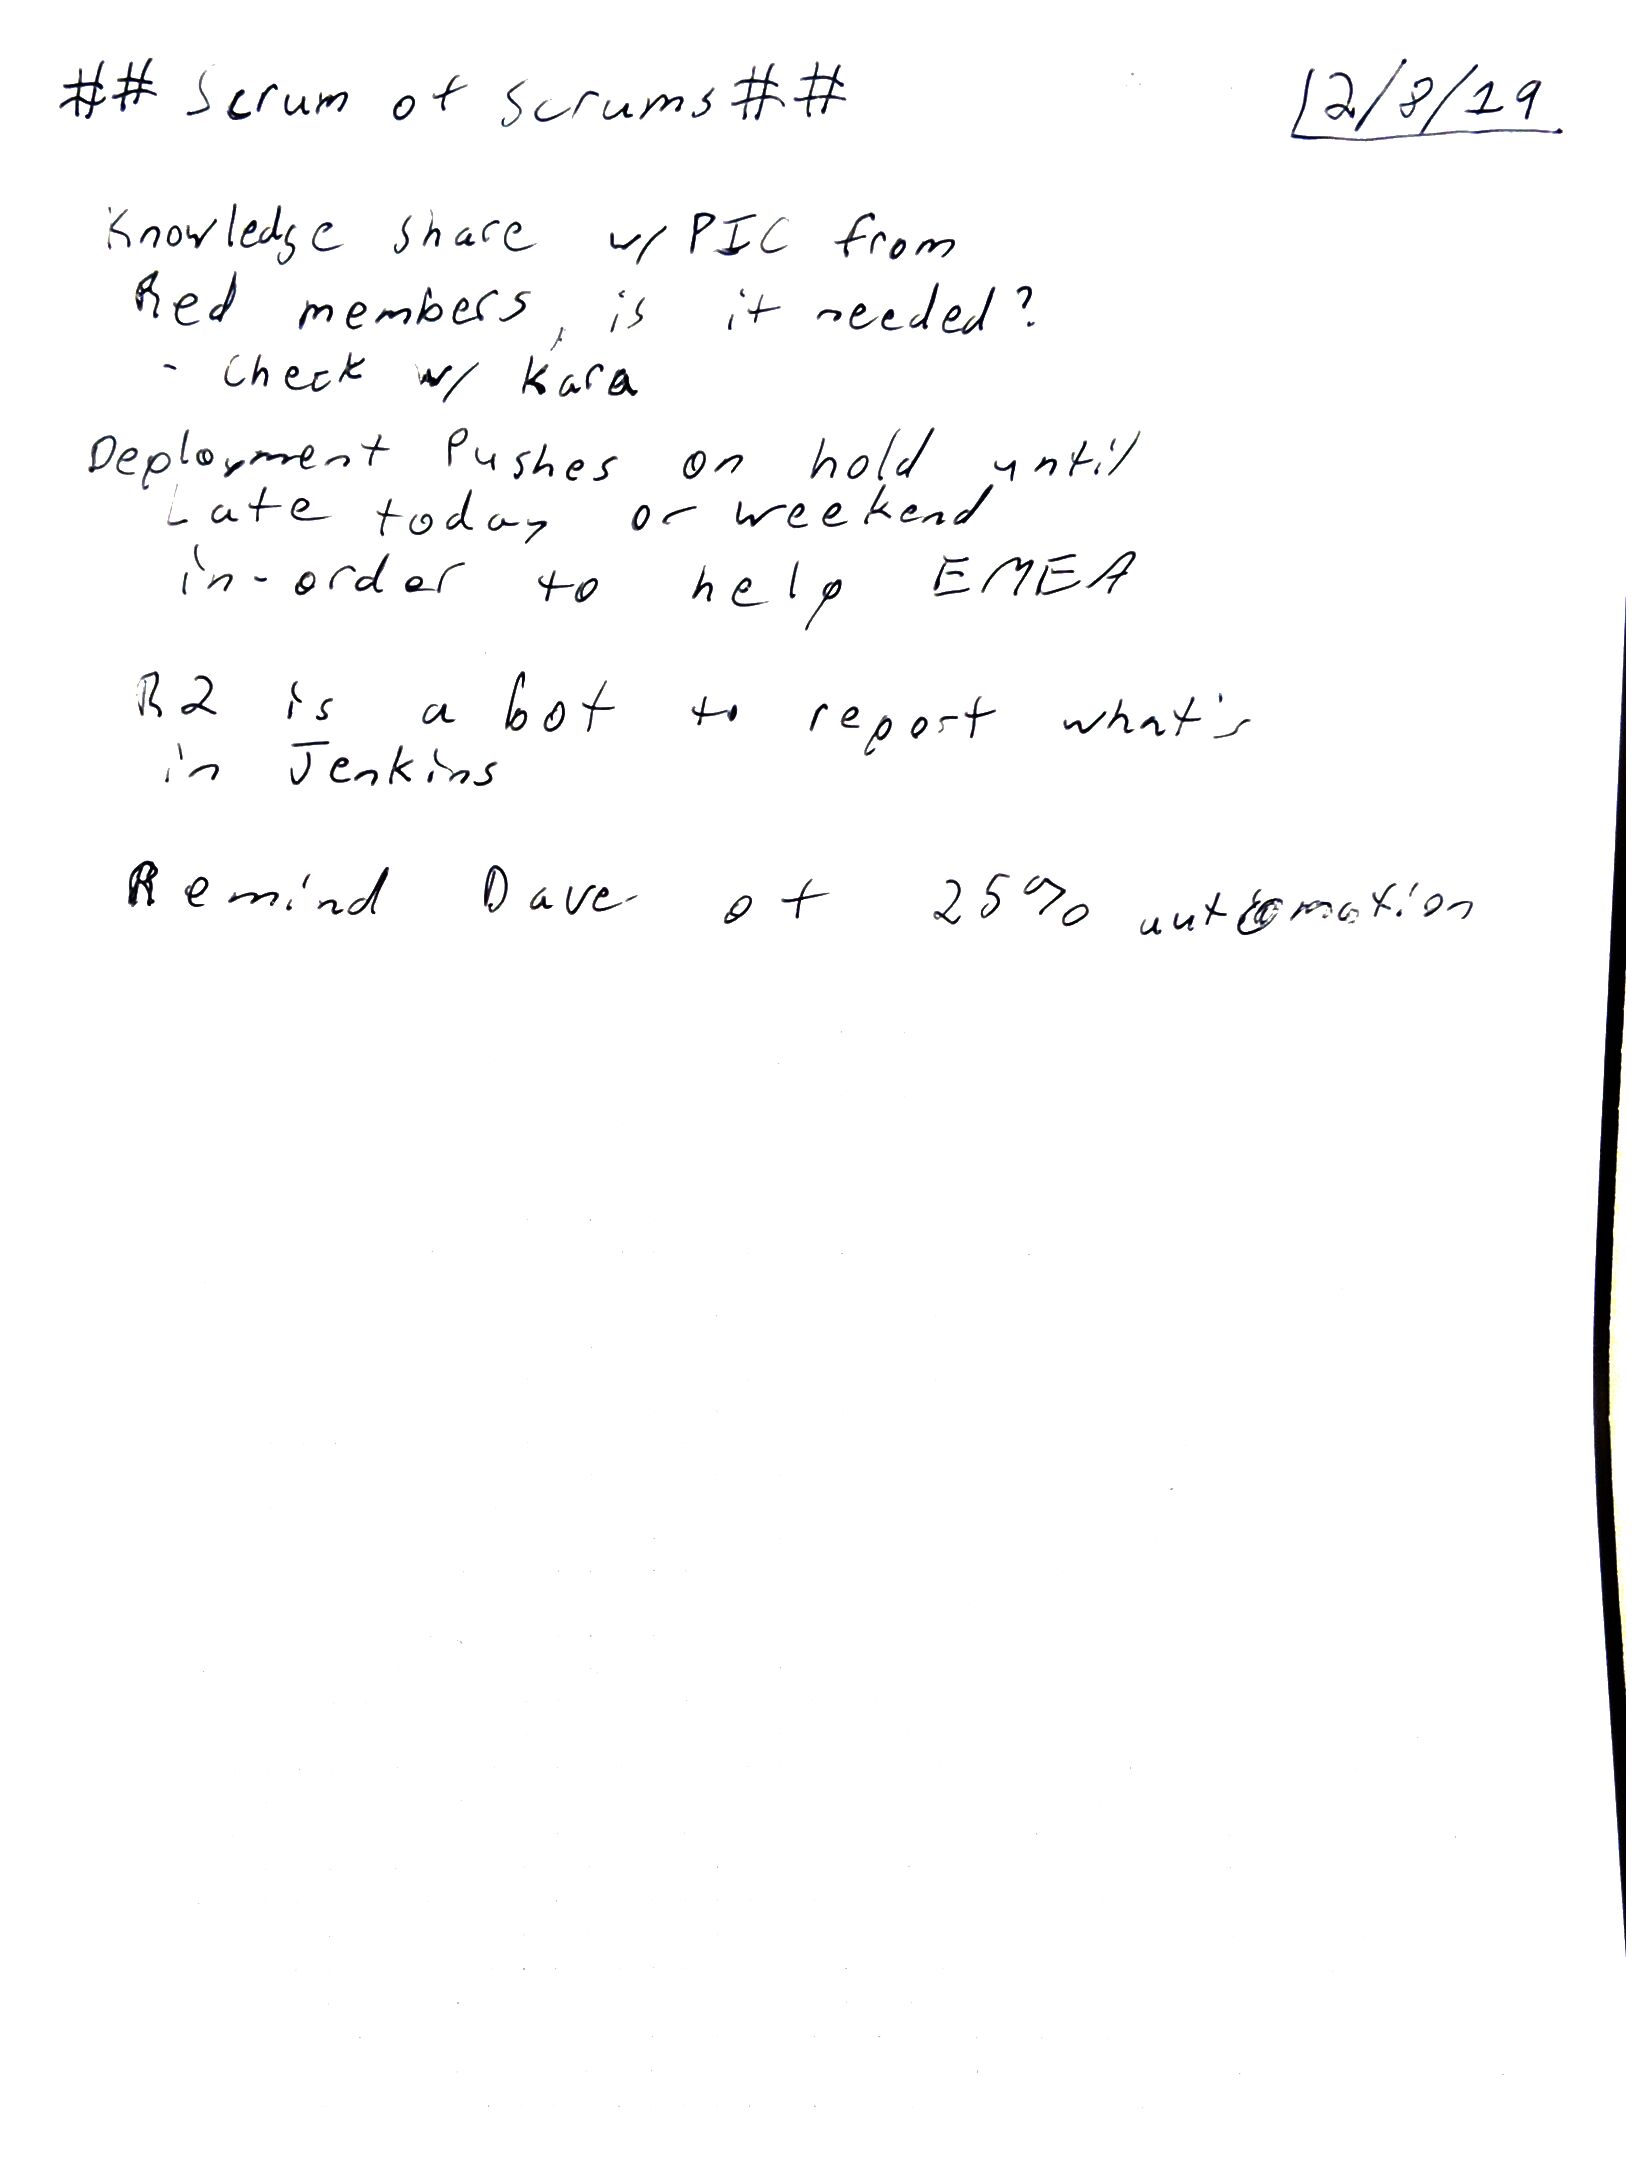 ## Scrum of Scrums ##
2/8/19
Knowledge share w/ PIC from
Red members, is it needed?
- Check w/ Kara
Deployment Pushes on hold until
Late today or weekend
in-order to help EMEA
R2 is a bot to report what's
in Jenkins
Remind Dave of 25% automation